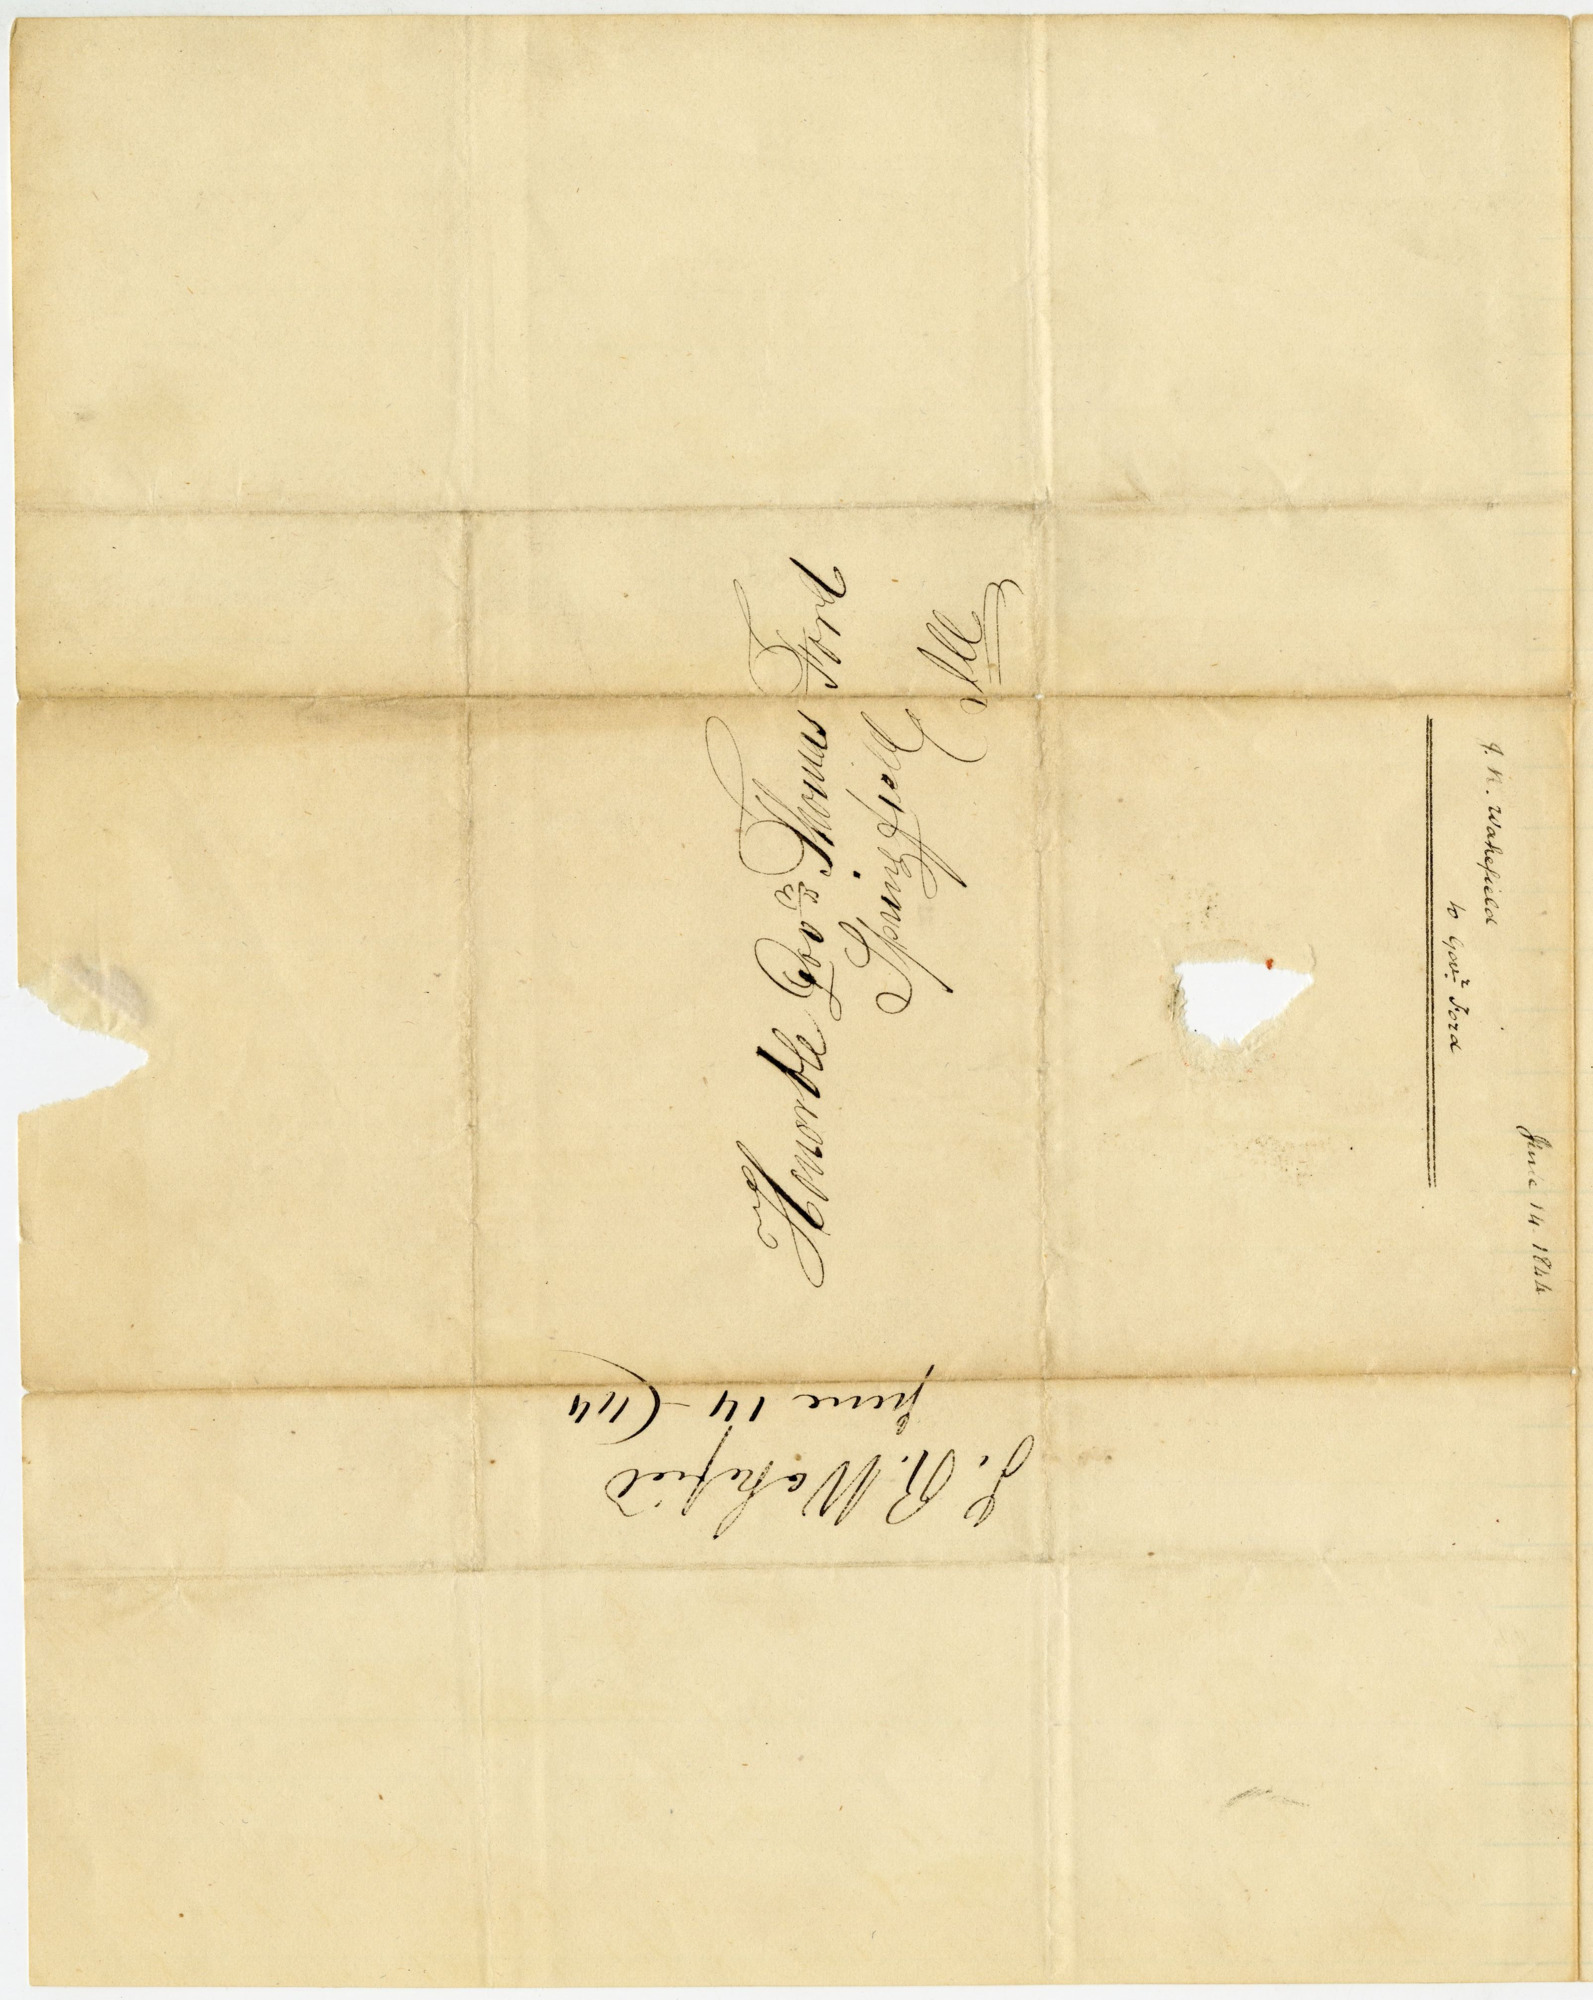 For
Honorable Gov.r Thomas Ford
Springfield
Ill
J. R. Wakefield
June 14 - (44
J. R. Wakefield
to Gov.r Ford
June 14. 1844